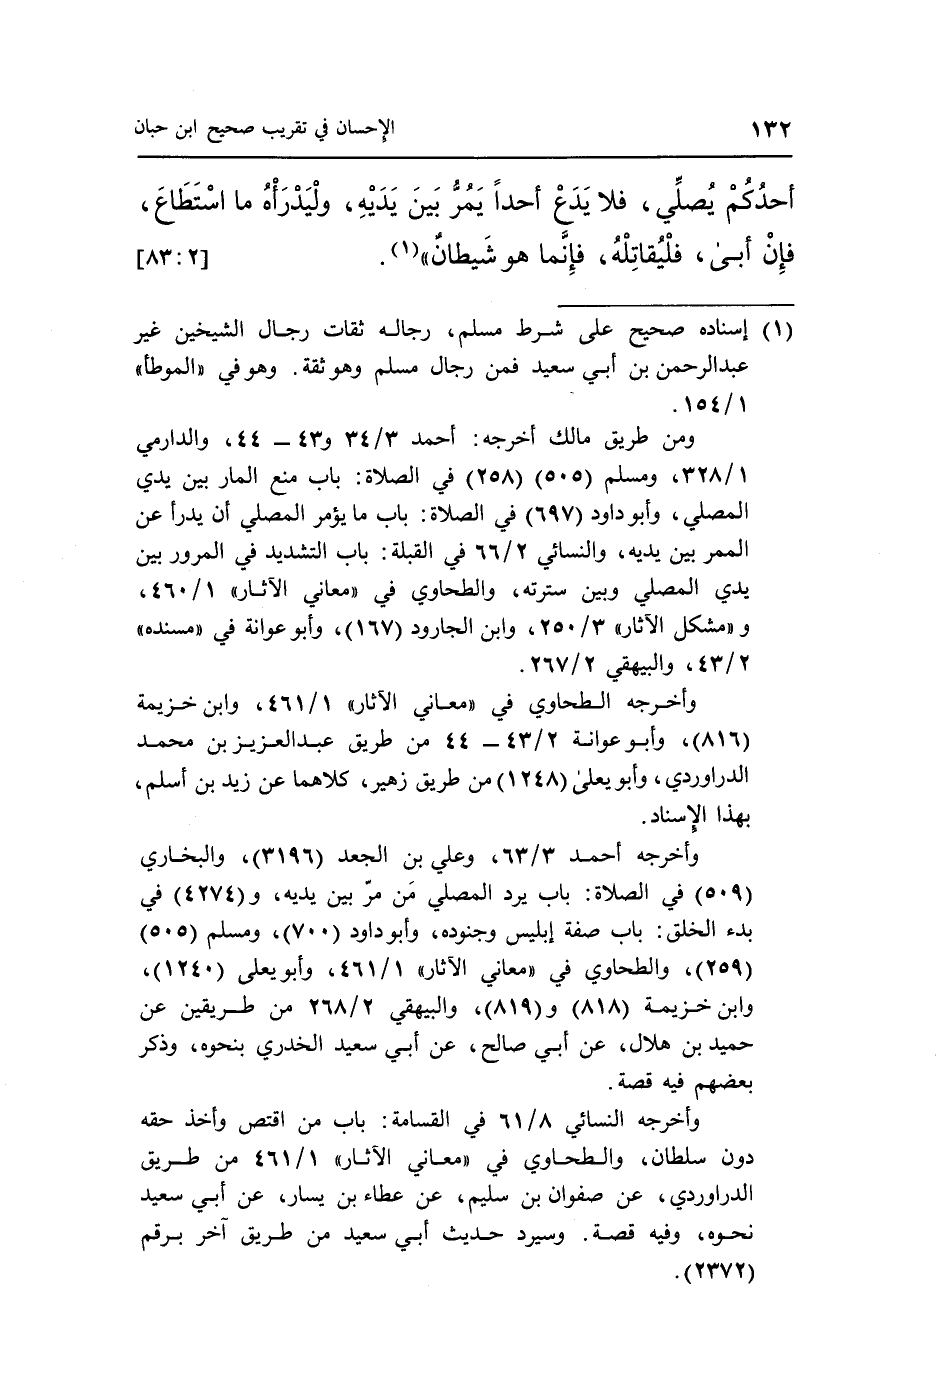 ١٣٢ الإحسان في تقريب صحيح ابن حبان
أحدُكُمْ يُصلِّي، فلا يَدَعْ أحداً يَمُرُّ بَينَ يَدَيْهِ، ولْيَدْرَأْهُ ما اسْتَطَاعَ،
فإِنْ أَبـىٰ، فلْيُقاتِلْهُ، فإِنَّما هو شَيطانٌ»(١). [٢:٨٣]
(١) إسناده صحيح على شرط مسلم، رجاله ثقات رجال الشيخين غير
عبدالرحمن بن أبي سعيد فمن رجال مسلم وهو ثقة. وهو في «الموطأ»
١/١٥٤.
ومن طريق مالك أخرجه: أحمد ٣/٣٤ و٤٣ ــ ٤٤، والدارمي
١/٣٢٨، ومسلم (٥٠٥) (٢٥٨) في الصلاة: باب منع المار بين يدي
المصلي، وأبو داود (٦٩٧) في الصلاة: باب ما يؤمر المصلي أن يدرأ عن
الممر بين يديه، والنسائي ٢/٦٦ في القبلة: باب التشديد في المرور بين
يدي المصلي وبين سترته، والطحاوي في «معاني الآثار» ١/٤٦٠،
و«مشكل الآثار» ٣/٢٥٠، وابن الجارود (١٦٧)، وأبو عوانة في «مسنده»
٢/٤٣، والبيهقي ٢/٢٦٧.
وأخرجه الطحاوي في «معاني الآثار» ١/٤٦١، وابن خزيمة
(٨١٦)، وأبو عوانة ٢/٤٣ ــ ٤٤ من طريق عبدالعزيز بن محمد
الدراوردي، وأبو يعلىٰ (١٢٤٨) من طريق زهير، كلاهما عن زيد بن أسلم،
بهذا الإِسناد.
وأخرجه أحمد ٣/٦٣، وعلي بن الجعد (٣١٩٦)، والبخاري
(٥٠٩) في الصلاة: باب يرد المصلي مَن مرّ بين يديه، و(٤٢٧٤) في
بدء الخلق: باب صفة إبليس وجنوده، وأبو داود (٧٠٠)، ومسلم (٥٠٥)
(٢٥٩)، والطحاوي في «معاني الآثار» ١/٤٦١، وأبو يعلى (١٢٤٠)،
وابن خزيمة (٨١٨) و(٨١٩)، والبيهقي ٢/٢٦٨ من طريقين عن
حميد بن هلال، عن أبي صالح، عن أبي سعيد الخدري بنحوه، وذكر
بعضهم فيه قصة.
وأخرجه النسائي ٨/٦١ في القسامة: باب من اقتص وأخذ حقه
دون سلطان، والطحاوي في «معاني الآثار» ١/٤٦١ من طريق
الدراوردي، عن صفوان بن سليم، عن عطاء بن يسار، عن أبي سعيد
نحوه، وفيه قصة. وسيرد حديث أبي سعيد من طريق آخر برقم
(٢٣٧٢).